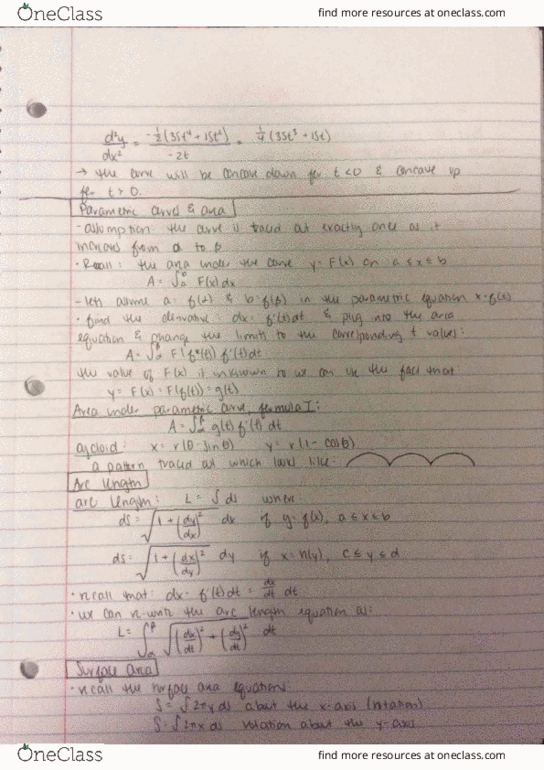 OneClass
find more resources at oneclass.com
d²y/dx² = -½(35t⁴ + 15t²)/-2t = ¼(35t³ + 15t)
→ the curve will be concave down for t < 0 & concave up
for t > 0.
Parametric curves & area
- assumption: the curve is traced out exactly once as it
increases from α to β
• Recall: the area under the curve y = F(x) on a ≤ x ≤ b
A = ∫ F(x) dx
- lets assume a = f(α) & b = f(β) in the parametric equation x = f(t)
• find the derivative: dx = f'(t)dt & plug into the area
equation & change the limits to the corresponding t values:
A = ∫ F(f(t)) f'(t) dt
the value of F(x) is unknown so we can use the fact that
y = F(x) = F(f(t)) = g(t)
Area under parametric curve, formula I:
A = ∫ g(t) f'(t) dt
cycloid: x = r(θ - sinθ) y = r(1 - cosθ)
a pattern traced out which looks like:
Arc length
arc length: L = ∫ ds where
ds = √(1 + (dy/dx)²) dx if y = f(x), a ≤ x ≤ b
ds = √(1 + (dx/dy)²) dy if x = h(y), c ≤ y ≤ d
• recall that: dx = f'(t)dt = dx/dt dt
• we can re-write the arc length equation as:
L = ∫ √((dx/dt)² + (dy/dt)²) dt
Surface area
• recall the surface area equations:
S = ∫ 2πy ds about the x-axis (rotation)
S = ∫ 2πx ds rotation about the y-axis
OneClass
find more resources at oneclass.com